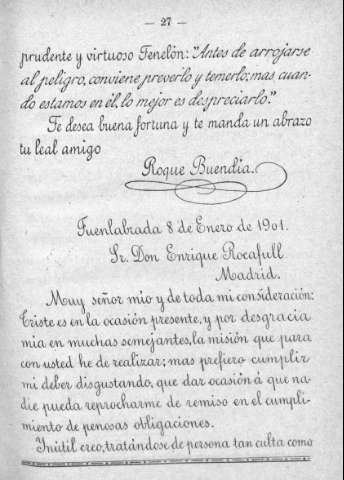 — 27 —
prudente y virtuoso Fenelón: "Antes de arrojarse
al peligro, conviene preverlo y temerlo; mas cuan-
do estamos en él, lo mejor es despreciarlo."
Te desea buena fortuna y te manda un abrazo
tu leal amigo
Roque Buendía.
Fuenlabrada 8 de Enero de 1901.
Sr. Don Enrique Rocafull
Madrid.
Muy señor mio y de toda mi consideración:
Triste es en la ocasión presente, y por desgracia
mia en muchas semejantes, la misión que para
con usted he de realizar; mas prefiero cumplir
mi deber disgustando, que dar ocasión á que na-
die pueda reprocharme de remiso en el cumpli-
miento de penosas obligaciones.
Inútil creo, tratándose de persona tan culta como